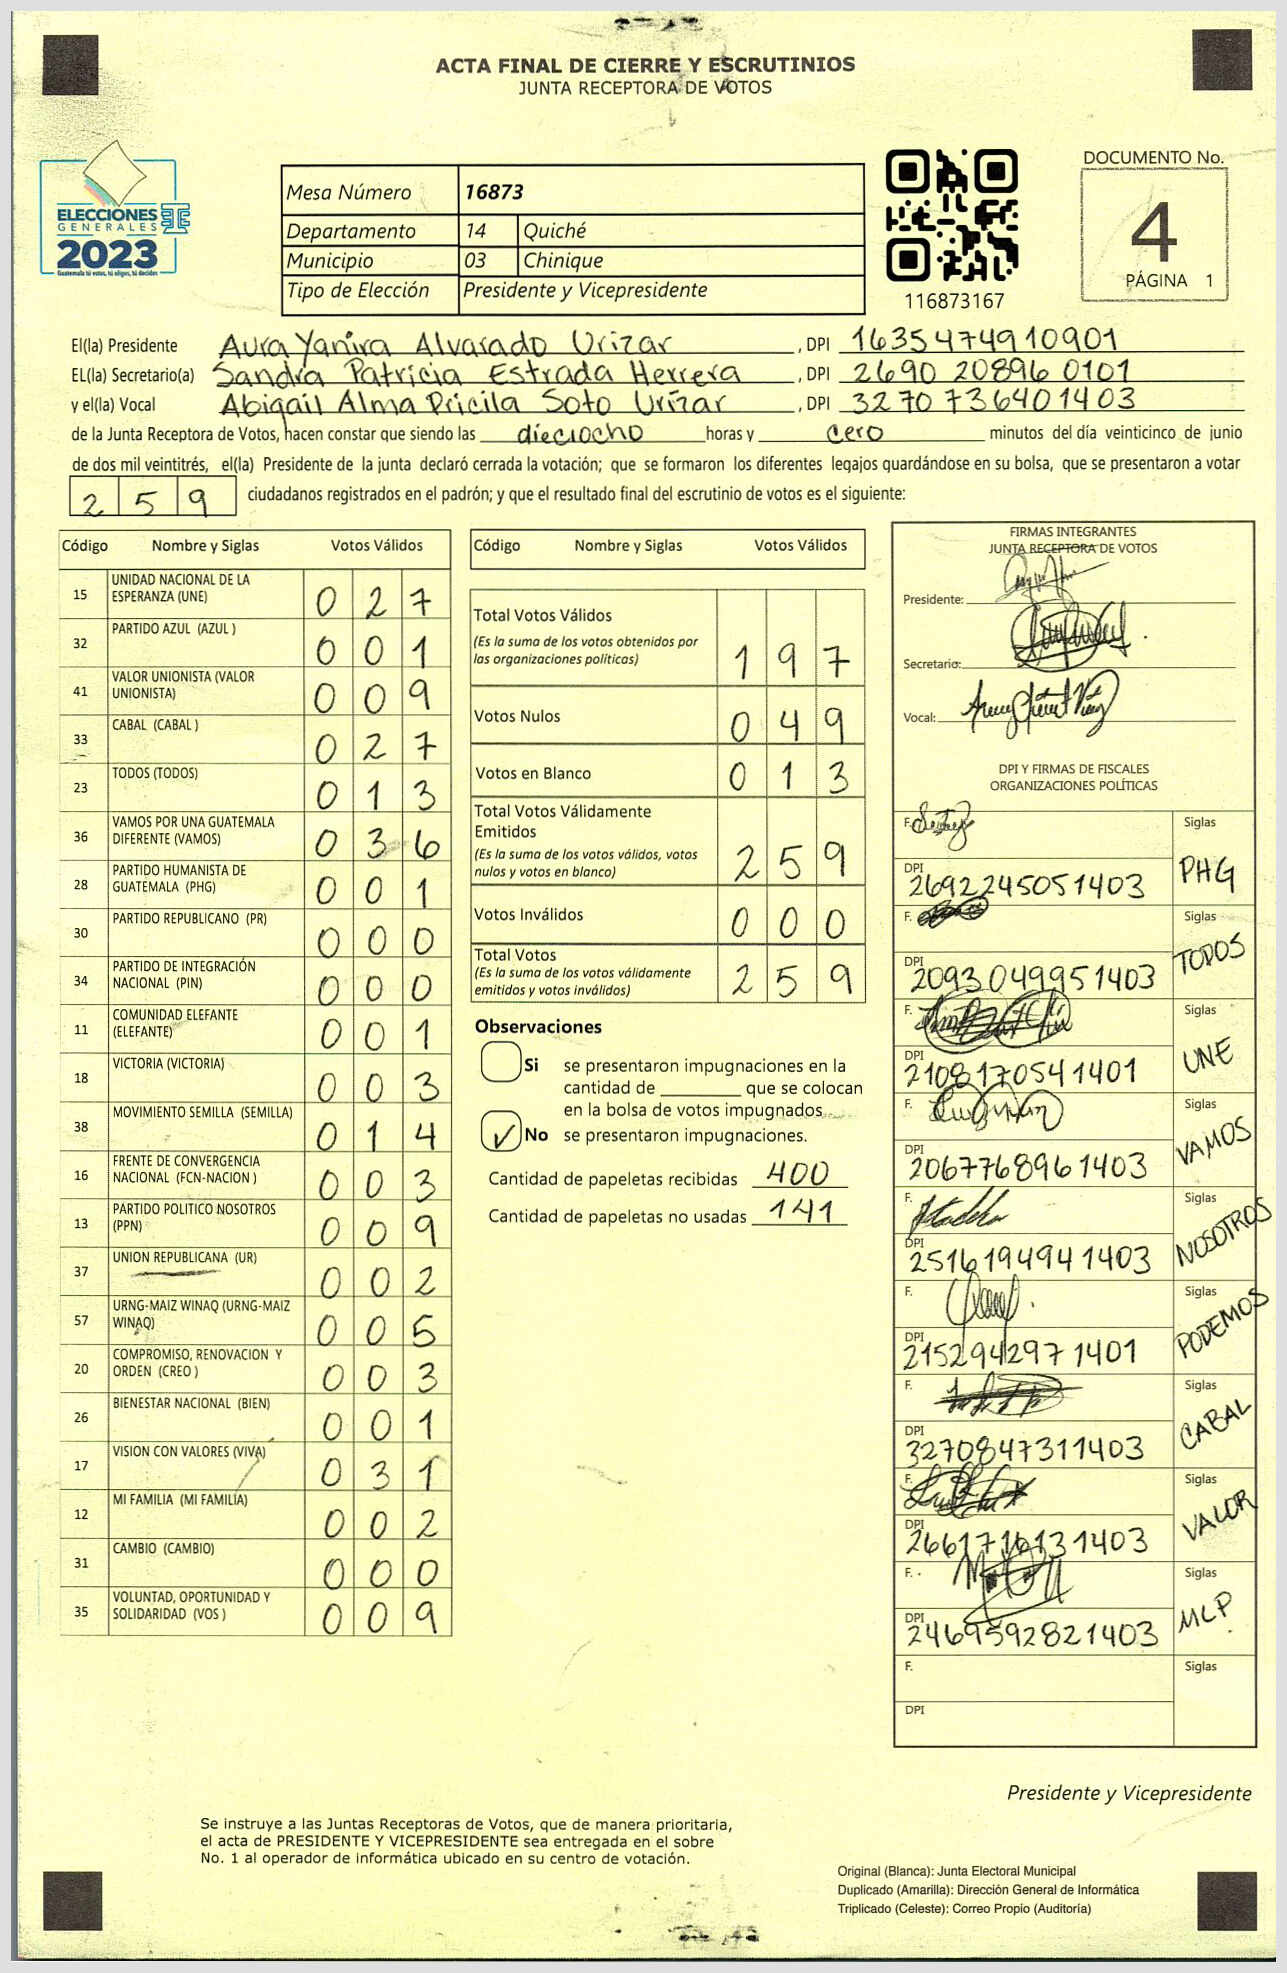 ACTA FINAL DE CIERRE Y ESCRUTINIOS
JUNTA RECEPTORA DE VOTOS
ELECCIONES
GENERALES
2023
Guatemala tú votas, tú eliges, tú decides
Mesa Número 16873
Departamento 14 Quiché
Municipio 03 Chinique
Tipo de Elección Presidente y Vicepresidente
116873167
DOCUMENTO No.
4
PÁGINA 1
El(la) Presidente Aura Yanira Alvarado Urizar, DPI 1635474910901
EL(la) Secretario(a) Sandra Patricia Estrada Herrera, DPI 2690 20896 0101
y el(la) Vocal Abigail Alma Pricila Soto Urizar, DPI 3270 736401403
de la Junta Receptora de Votos, hacen constar que siendo las dieciocho horas y cero minutos del día veinticinco de junio
de dos mil veintitrés, el(la) Presidente de la junta declaró cerrada la votación; que se formaron los diferentes legajos guardándose en su bolsa, que se presentaron a votar
259 ciudadanos registrados en el padrón; y que el resultado final del escrutinio de votos es el siguiente:
Código Nombre y Siglas Votos Válidos
15 UNIDAD NACIONAL DE LA ESPERANZA (UNE) 0 2 7
32 PARTIDO AZUL (AZUL ) 0 0 1
41 VALOR UNIONISTA (VALOR UNIONISTA) 0 0 9
33 CABAL (CABAL ) 0 2 7
23 TODOS (TODOS) 0 1 3
36 VAMOS POR UNA GUATEMALA DIFERENTE (VAMOS) 0 3 6
28 PARTIDO HUMANISTA DE GUATEMALA (PHG) 0 0 1
30 PARTIDO REPUBLICANO (PR) 0 0 0
34 PARTIDO DE INTEGRACIÓN NACIONAL (PIN) 0 0 0
11 COMUNIDAD ELEFANTE (ELEFANTE) 0 0 1
18 VICTORIA (VICTORIA) 0 0 3
38 MOVIMIENTO SEMILLA (SEMILLA) 0 1 4
16 FRENTE DE CONVERGENCIA NACIONAL (FCN-NACION ) 0 0 3
13 PARTIDO POLITICO NOSOTROS (PPN) 0 0 9
37 UNION REPUBLICANA (UR) 0 0 2
57 URNG-MAIZ WINAQ (URNG-MAIZ WINAQ) 0 0 5
20 COMPROMISO, RENOVACION Y ORDEN (CREO ) 0 0 3
26 BIENESTAR NACIONAL (BIEN) 0 0 1
17 VISION CON VALORES (VIVA) 0 3 1
12 MI FAMILIA (MI FAMILIA) 0 0 2
31 CAMBIO (CAMBIO) 0 0 0
35 VOLUNTAD, OPORTUNIDAD Y SOLIDARIDAD (VOS ) 0 0 9
Código Nombre y Siglas Votos Válidos
Total Votos Válidos
(Es la suma de los votos obtenidos por
las organizaciones politicas) 1 9 7
Votos Nulos 0 4 9
Votos en Blanco 0 1 3
Total Votos Válidamente
Emitidos
(Es la suma de los votos válidos, votos
nulos y votos en blanco) 2 5 9
Votos Inválidos 0 0 0
Total Votos
(Es la suma de los votos válidamente
emitidos y votos inválidos) 2 5 9
Observaciones
Si se presentaron impugnaciones en la
cantidad de ________ que se colocan
en la bolsa de votos impugnados
No se presentaron impugnaciones.
Cantidad de papeletas recibidas 400
Cantidad de papeletas no usadas 141
FIRMAS INTEGRANTES
JUNTA RECEPTORA DE VOTOS
Presidente:
Secretario:
Vocal:
DPI Y FIRMAS DE FISCALES
ORGANIZACIONES POLÍTICAS
F. Siglas
DPI 2692245051403 PHG
F. Siglas
DPI 2093049951403 TODOS
F. Siglas
DPI 2108170541401 UNE
F. Siglas
DPI 2067768961403 VAMOS
F. Siglas
DPI 2516194941403 NOSOTROS
F. Siglas
DPI 2152942971401 PODEMOS
F. Siglas
DPI 3270847311403 CABAL
F. Siglas
DPI 2661716131403 VALOR
F. Siglas
DPI 2469592821403 MLP
F. Siglas
DPI
Presidente y Vicepresidente
Se instruye a las Juntas Receptoras de Votos, que de manera prioritaria,
el acta de PRESIDENTE Y VICEPRESIDENTE sea entregada en el sobre
No. 1 al operador de informática ubicado en su centro de votación.
Original (Blanca): Junta Electoral Municipal
Duplicado (Amarilla): Dirección General de Informática
Triplicado (Celeste): Correo Propio (Auditoría)